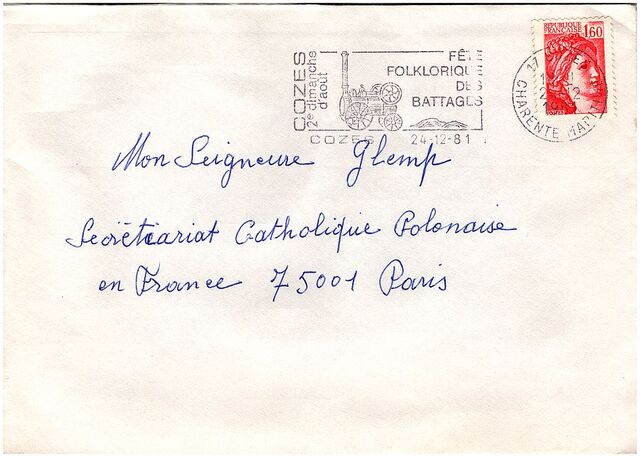 COZES
2e dimanche
d'août
FÊTE
FOLKLORIQUE
DES
BATTAGES
COZES 24-12-81
RÉPUBLIQUE
FRANÇAISE 1,60
17
CHARENTE MARIT
Mon Seigneure Glemp
Secrétariat Catholique Polonaise
en France 75001 Paris